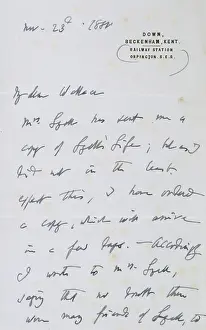 Nov. 23d 1881
DOWN,
BECKENHAM, KENT.
RAILWAY STATION
ORPINGTON. S.E.R.
My dear Wallace
Mrs Lyell has sent me a
copy of Lyell's Life; as I
did not in the least
expect this, I have ordered
a copy, which will arrive
in a few days. — Accordingly
I wrote to Mrs Lyell,
saying that no doubt there
were many friends of Lyell, to